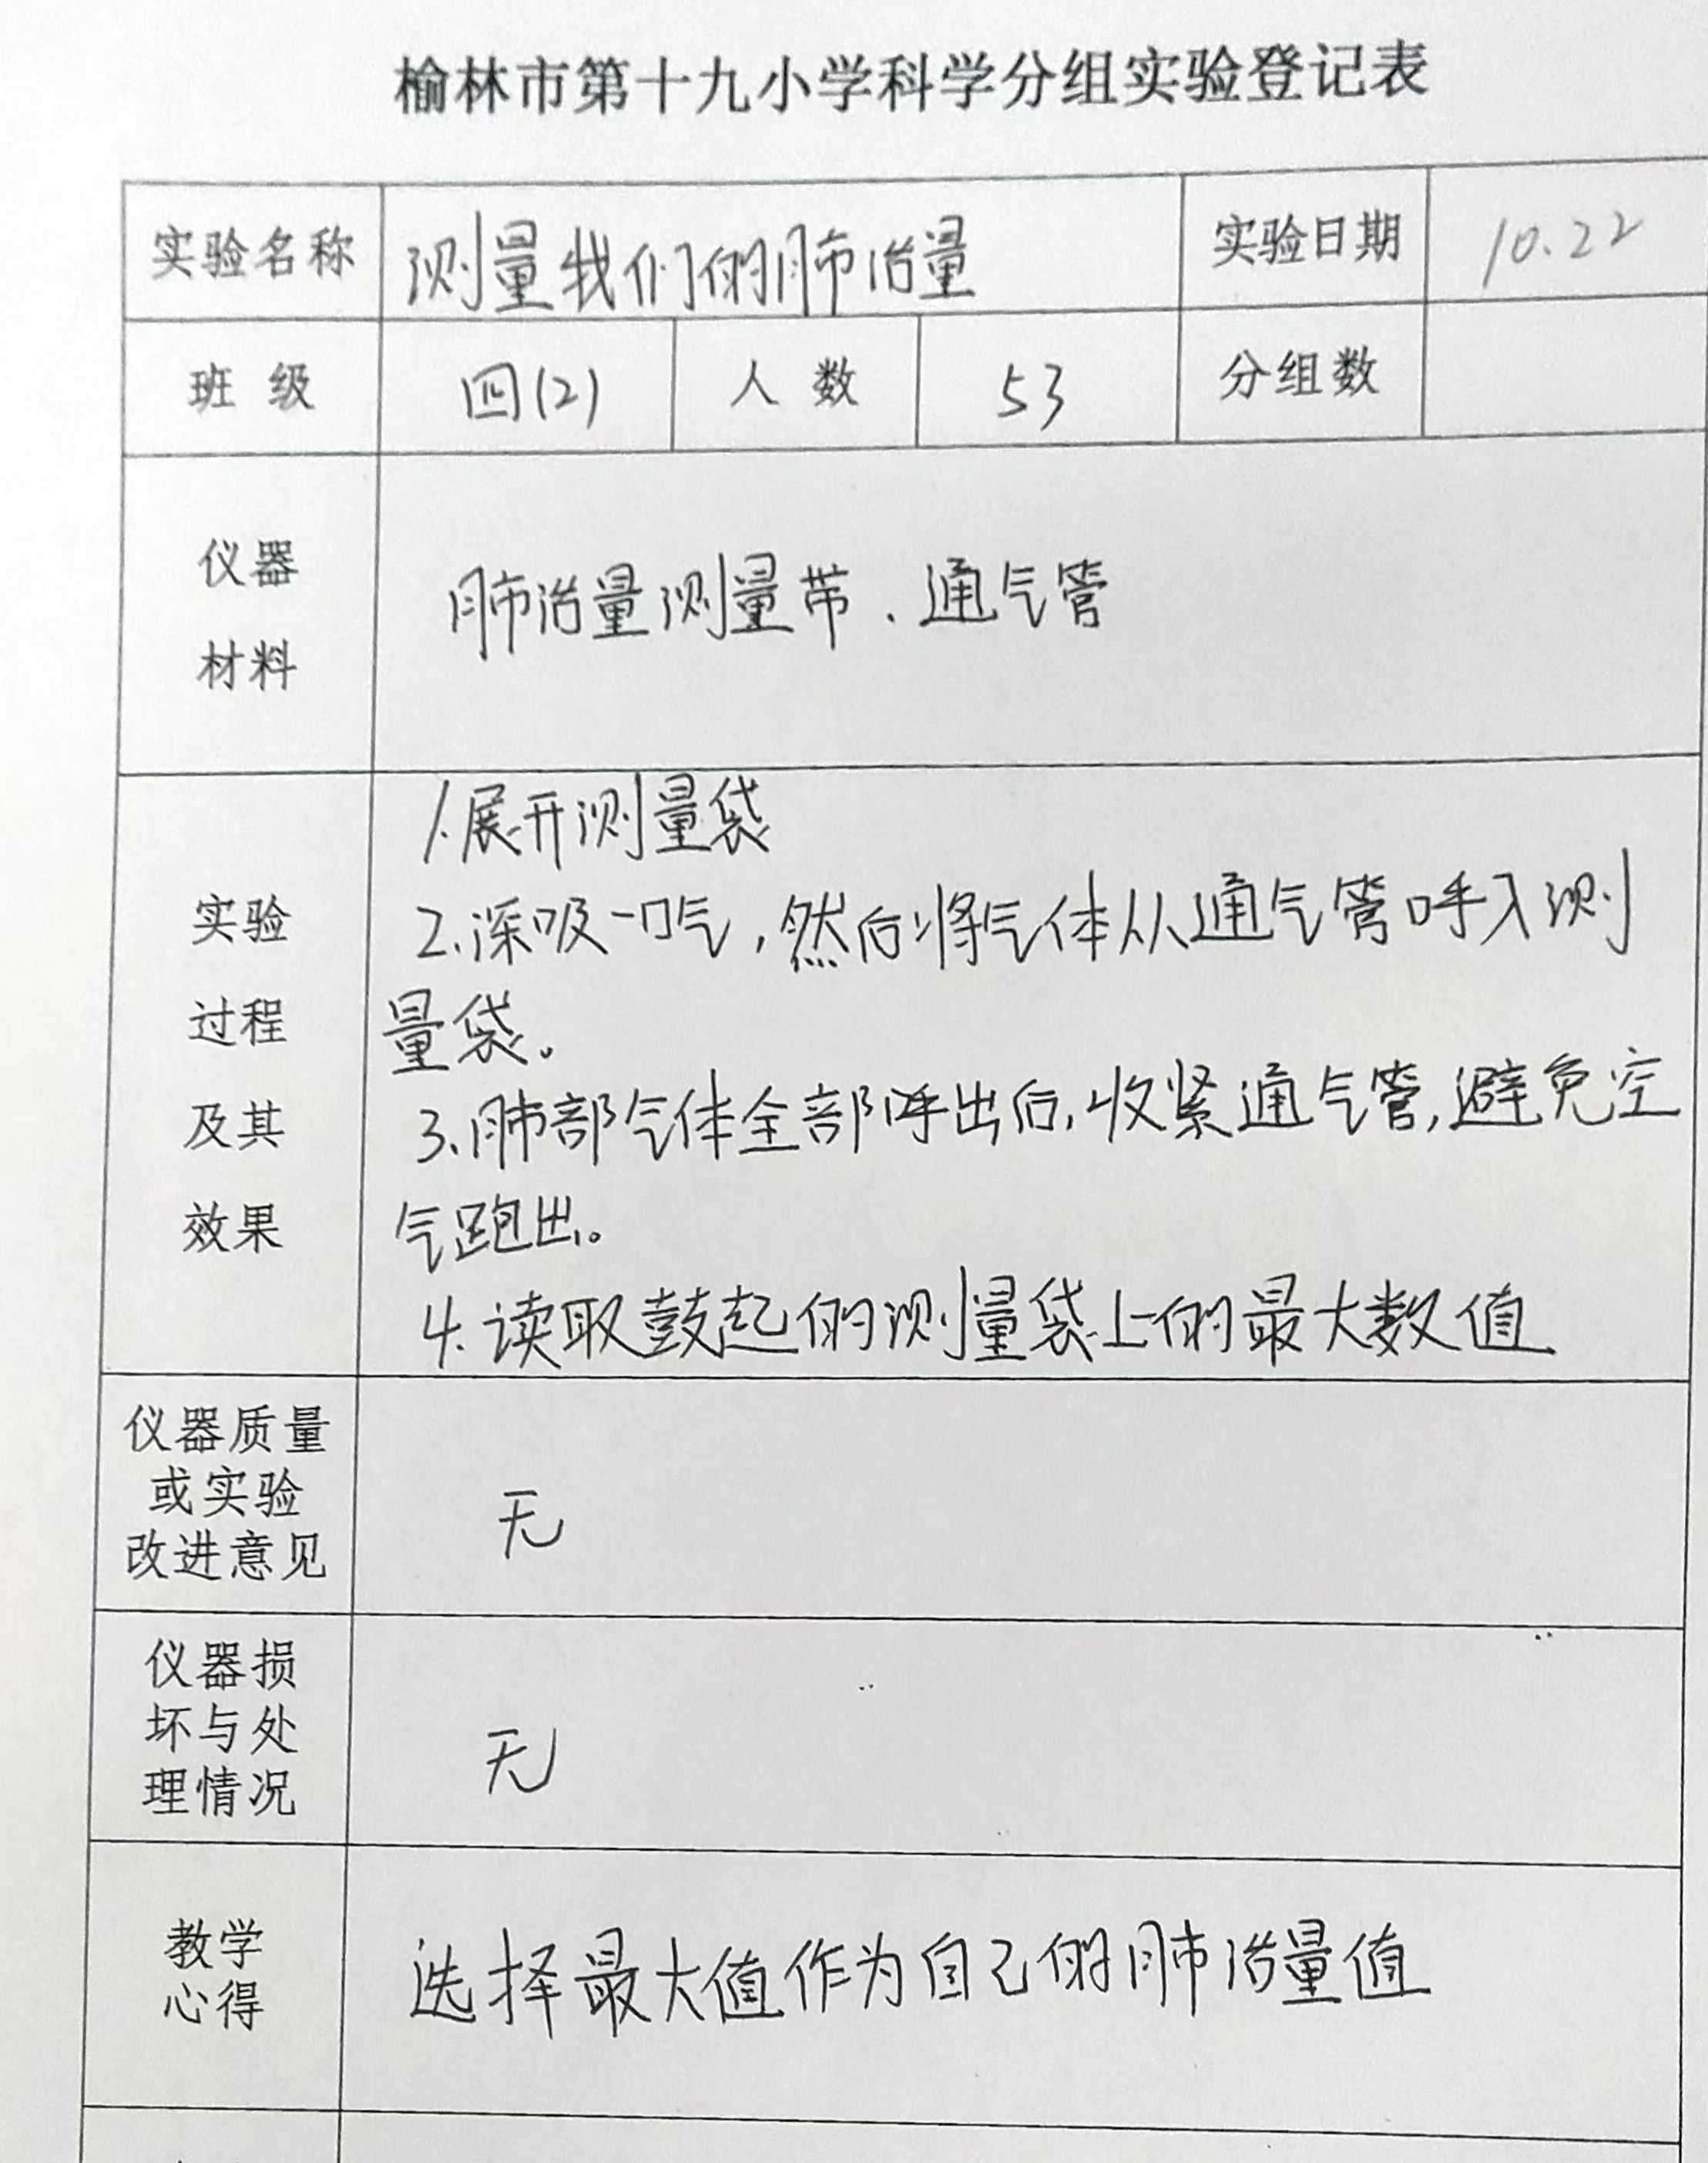 榆林市第十九小学科学分组实验登记表
实验名称 测量我们的肺活量 实验日期 10.22
班 级 四(2) 人 数 53 分组数
仪器
材料
肺活量测量带、通气管
实验
过程
及其
效果
1.展开测量袋
2.深吸一口气,然后将气体从通气管呼入测
量袋。
3.肺部气体全部呼出后,收紧通气管,避免空
气跑出。
4.读取鼓起的测量袋上的最大数值
仪器质量
或实验
改进意见
无
仪器损
坏与处
理情况
无
教学
心得
选择最大值作为自己的肺活量值